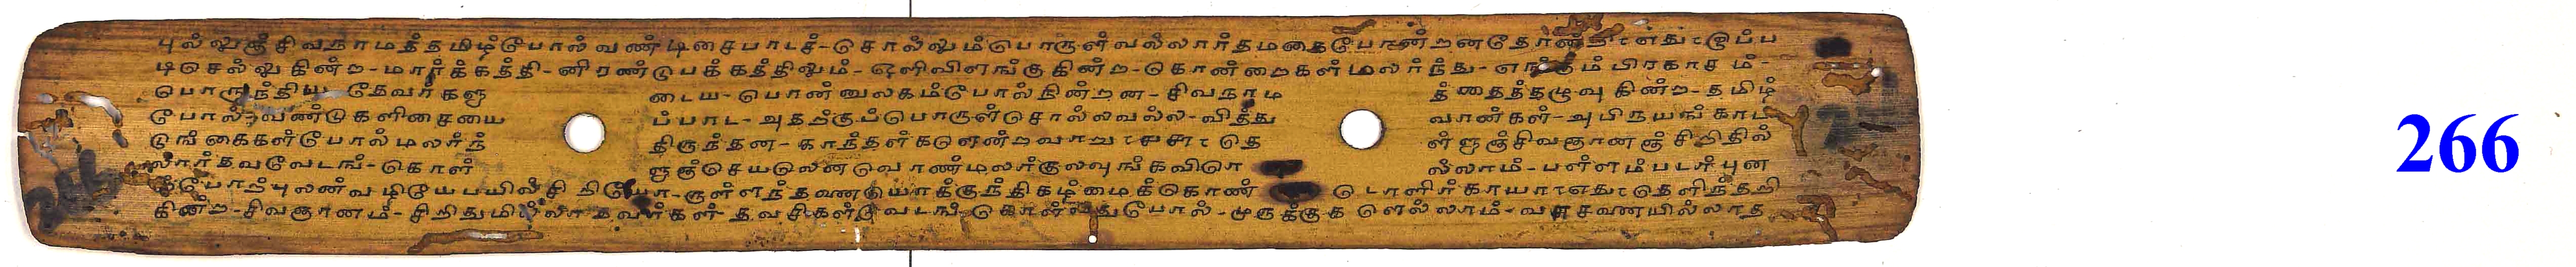 புல லுஞ சிவநாமத்தமிழ்போல் வண டிசைபாடச - சொல்லும்பொருள்வல்லார்தமகைபோன்றனதோன்றி
டிசெல்லுகின்ற - மார்க்கத்தி - னிரண்டுபக்கத்திலும் - ஒளிவிளங்குகின்ற - கொன்றைகள்மலர்ந்து - எங்கும் பிரகாச ம் -
பொருந்திய தேவர்களு டைய - பொன்னுலகம்போல்நின்றன - சிவநாம த்தைத்தழுவுகின்ற - தமிழ்
போல் - வண்டுகளிசையை ப்பாட - அதற்குப்பொருள்சொல்லவல்ல - வித்து வான்கள் - அபிநயங்காட
டுங்கைகள்போல்மலர்ந் திருந்தன - காந்தள்களென்றவாறு ளளஞ்சிவஞானஞ் சிறிதில்
லார்தவவேடங் - கொள் ளுஞ்செயலென வொண்மலர்குலவுங்கவிரெ ல்லாம் - பள்ளம்படர்புன
ற்போற்புலண்வழியேபயில்சி றியோ - ருள்ளந்தவணெயாக்குந்திகழ்மைக்கொண் டொளிர்காயா தெளிந்தறி
கின்ற - சிவஞானம் - சிறிதுமில்லாதவர்கள் - தவசிகள்வேடங் கொள்வதுபோல் - முருக்குக ளெல்லாம் - வாசனையில்லாத
266